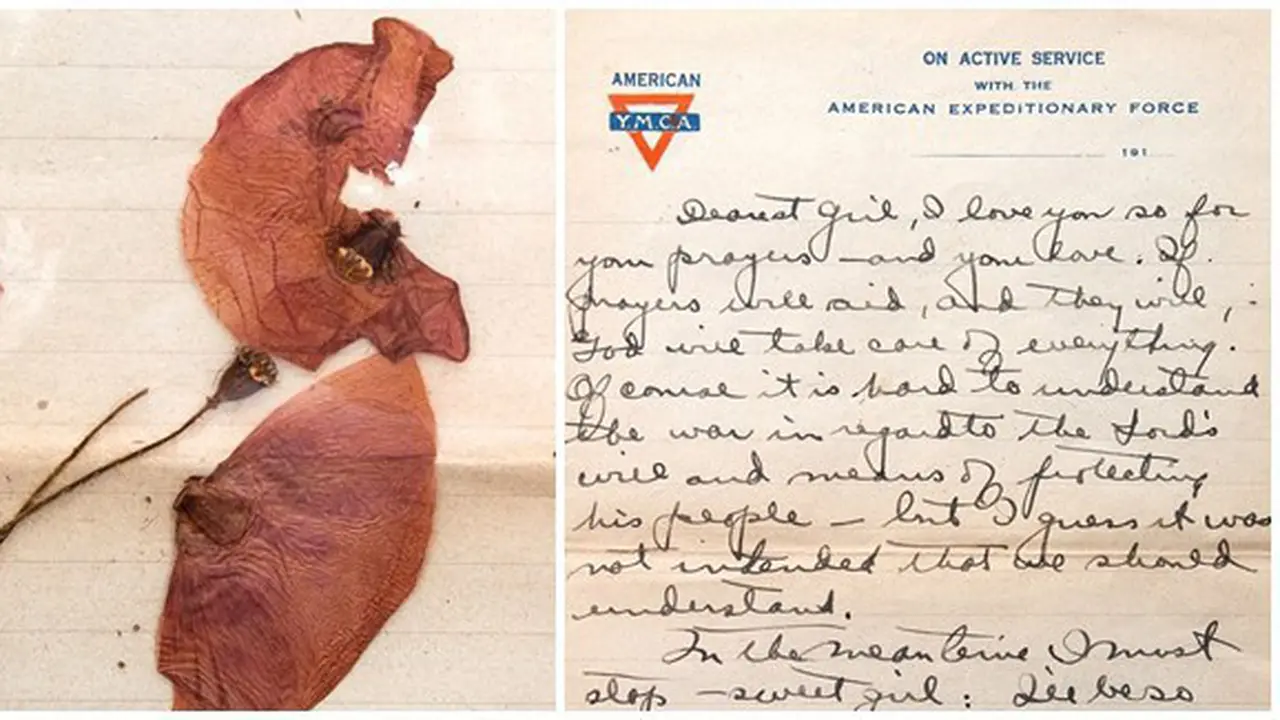 AMERICAN
Y.M.C.A.
ON ACTIVE SERVICE
WITH THE
AMERICAN EXPEDITIONARY FORCE
191
Dearest Girl, I love you so for
your prayers – and your love. If
prayers will aid, and they will,
God will take care of everything.
Of course it is hard to understand
the war in regard to the Lord's
will and means of protecting
his people – but I guess it was
not intended that we should
understand.
In the meantime I must
stop – sweet girl. I'll be so